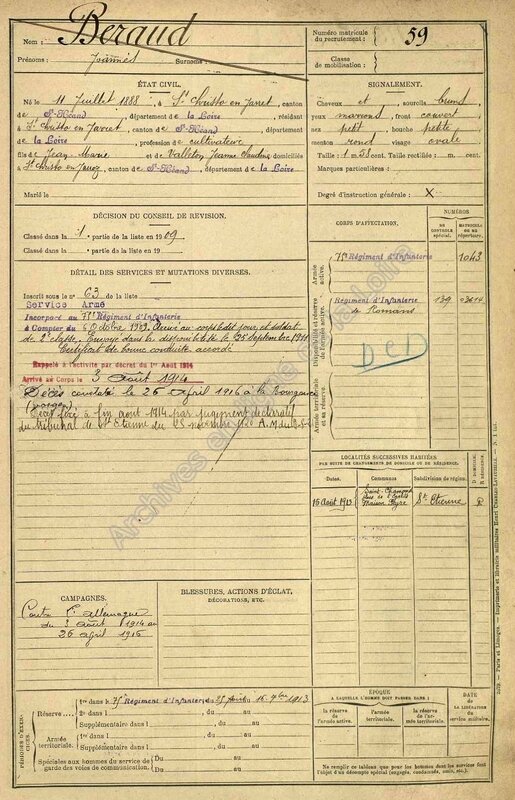 Nom : Beraud
Prénoms : Joannès Surnoms :
Numéro matricule du recrutement : 59
Classe de mobilisation :
ÉTAT CIVIL.
Né le 11 Juillet 1888, à St Christo en Jarret, canton
de St-Héand, département de la Loire, résidant
à St Christo en Jarret, canton de St-Héand, département de
la Loire, profession de cultivateur
fils de Jean Marie et de Valleton Jeanne Claudine, domiciliés
à St Christo en Jarez, canton de St-Héand, département de la Loire
Marié le
SIGNALEMENT.
Cheveux et sourcils bruns
yeux marrons front couvert
nez petit bouche petite
menton rond visage ovale
Taille : 1 m. 53 cent. Taille rectifiée : m. cent.
Marques particulières :
Degré d'instruction générale : X
DÉCISION DU CONSEIL DE REVISION.
Classé dans la 1e partie de la liste en 1909
DÉTAIL DES SERVICES ET MUTATIONS DIVERSES.
Inscrit sous le n° 63 de la liste
Service Armé
Incorporé au 75e Régiment d'Infanterie
à Compter du 6 Octobre 1909. Arrivé au corps ledit jour et soldat
de 2e classe. Envoyé dans la disponibilité le 25 septembre 1911
Certificat de bonne conduite accordé
Rappelé à l'activité par décret du 1er Août 1914
Arrivé au Corps le 3 août 1914
Décès constaté le 26 April 1916 à la Bourgonce
(Vosges)
Décès fixé à fin août 1914 par jugement déclaratif
du tribunal de St Etienne du novembre 1920
CORPS D'AFFECTATION.
NUMÉROS
AU CONTRÔLE spécial.
MATRICULE ou au répertoire.
Armée active.
75e Régiment d'Infanterie 1043
Disponibilité et réserve de l'armée active.
Régiment d'Infanterie 139
de Romans
DCD
Armée territoriale et sa réserve.
LOCALITÉS SUCCESSIVES HABITÉES
PAR SUITE DE CHANGEMENTS DE DOMICILE OU DE RÉSIDENCE.
Dates. Communes. Subdivision de région. D. domicile R. résidence.
16 Août 1913 Saint-Chamond St Etienne R
CAMPAGNES.
Contre l'Allemagne
du 3 août 1914 au
26 april 1916
BLESSURES, ACTIONS D'ÉCLAT,
DÉCORATIONS, ETC.
PÉRIODES D'EXERCICES.
Réserve
1re dans le 75e Régiment d'Infanterie du 25 Août au 16 7bre 1913
2e dans l , du au
Supplémentaire dans l , du au
Armée territoriale.
dans l , du au
Supplémentaire dans l , du au
Spéciales aux hommes du service de garde des voies de communication.
Du au
Du au
ÉPOQUE
A LAQUELLE L'HOMME DOIT PASSER DANS :
la réserve de l'armée active.
l'armée territoriale.
la réserve de l'armée territoriale.
DATE de LA LIBÉRATION du service militaire.
Ne remplir ce tableau que pour les hommes dont les services font l'objet d'un décompte spécial (engagés, condamnés, omis, etc.)
Paris et Limoges. — Imprimerie et librairie militaires Henri Charles-Lavauzelle.